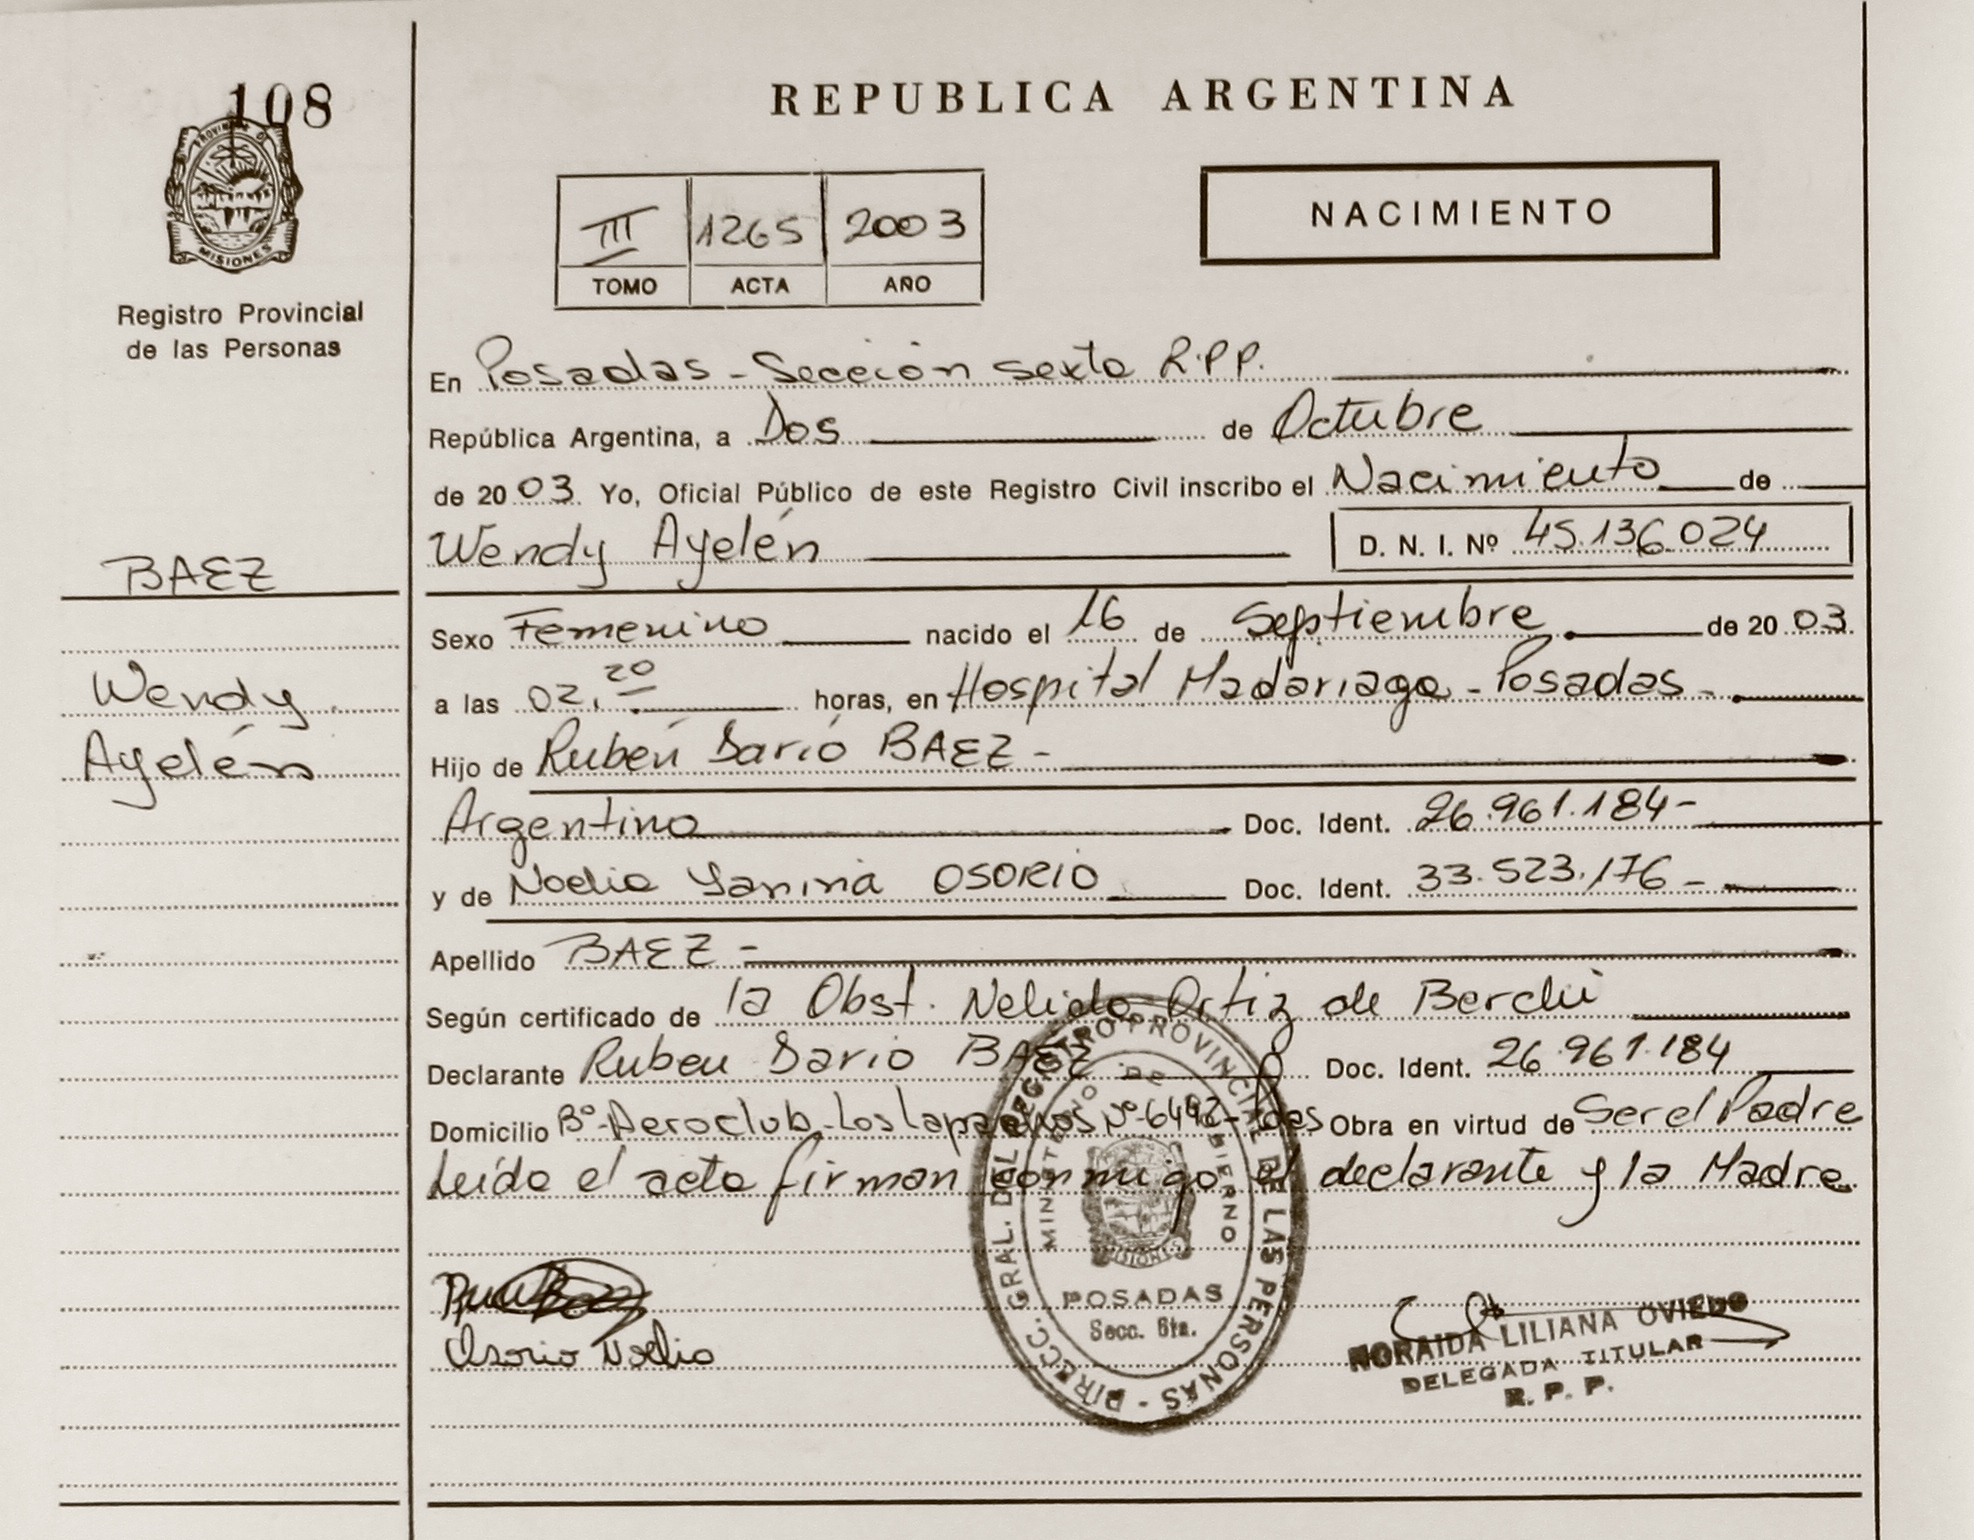 108
PROVINCIA DE
MISIONES
Registro Provincial
de las Personas
BAEZ
Wendy
Ayelén
REPUBLICA ARGENTINA
III 1265 2003
TOMO ACTA AÑO
NACIMIENTO
En Posadas - Sección sexta R.P.P.
República Argentina, a Dos de Octubre
de 2003 Yo, Oficial Público de este Registro Civil inscribo el Nacimiento de
Wendy Ayelén D. N. I. Nº 45.136.024
Sexo Femenino nacido el 16 de Septiembre de 2003
a las 02,20 horas, en Hospital Madariaga - Posadas -
Hijo de Rubén Darío BAEZ -
Argentino Doc. Ident. 26.961.184-
y de Noelia Yanina OSORIO Doc. Ident. 33.523.176 -
Apellido BAEZ -
Según certificado de la Obst. Nelida Ortiz de
Declarante Ruben Dario BAEZ Doc. Ident. 26.961.184
Domicilio Bº Aeroclub - Los Nº 6442 - Pdas Obra en virtud de Ser el Padre
Leída el acta firman conmigo el declarante y la Madre
DIRECC. GRAL. DEL REGISTRO PROVINCIAL DE LAS PERSONAS -
MINISTERIO DE GOBIERNO
MISIONES
POSADAS
Secc. 6ta.
Osorio Noelia
NORAIDA LILIANA OVIEDO
DELEGADA TITULAR
R. P. P.